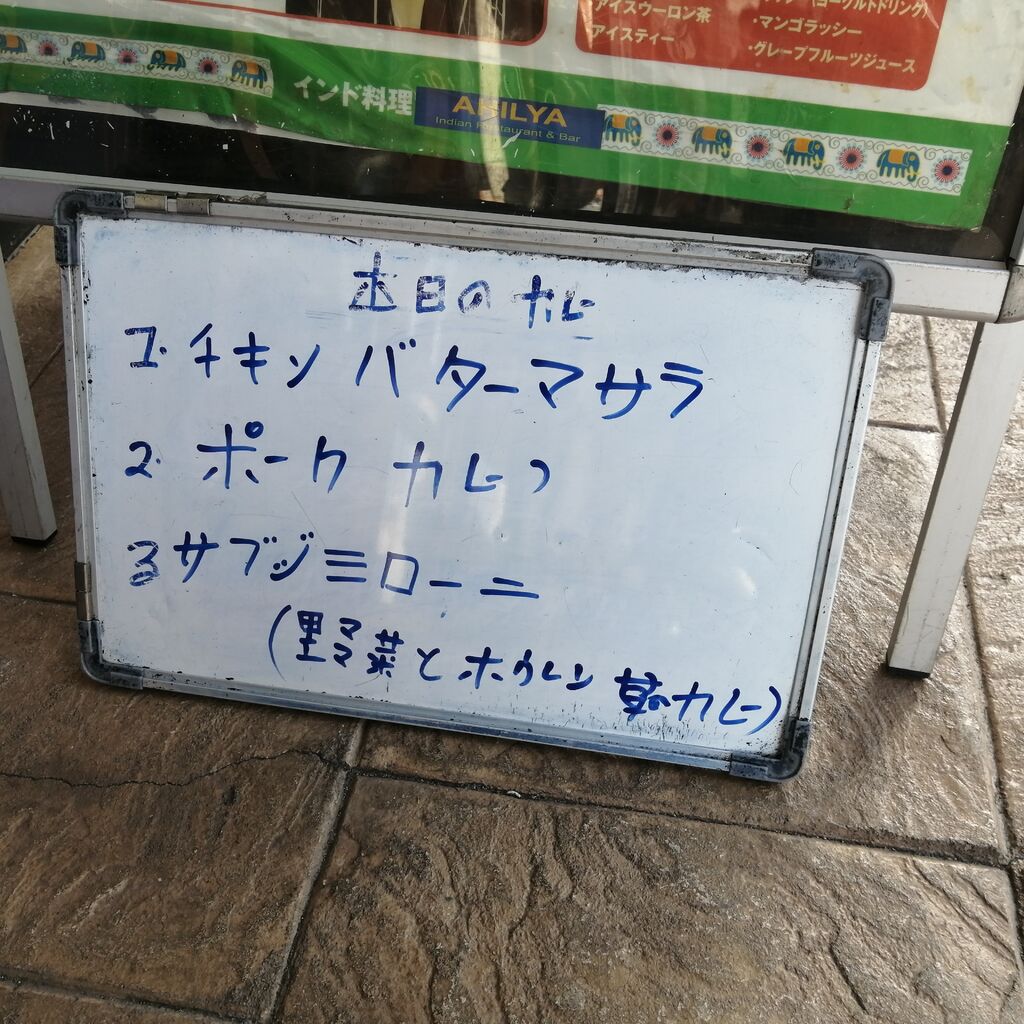 アイスウーロン茶
アイスティー
(ヨーグルトドリンク)
・マンゴラッシー
・グレープフルーツジュース
インド料理
AHILYA
Indian Restaurant & Bar
本日のカレー
1. チキン バターマサラ
2. ポーク カレー
3 サブジミローニ
(野菜とホウレン草のカレー)